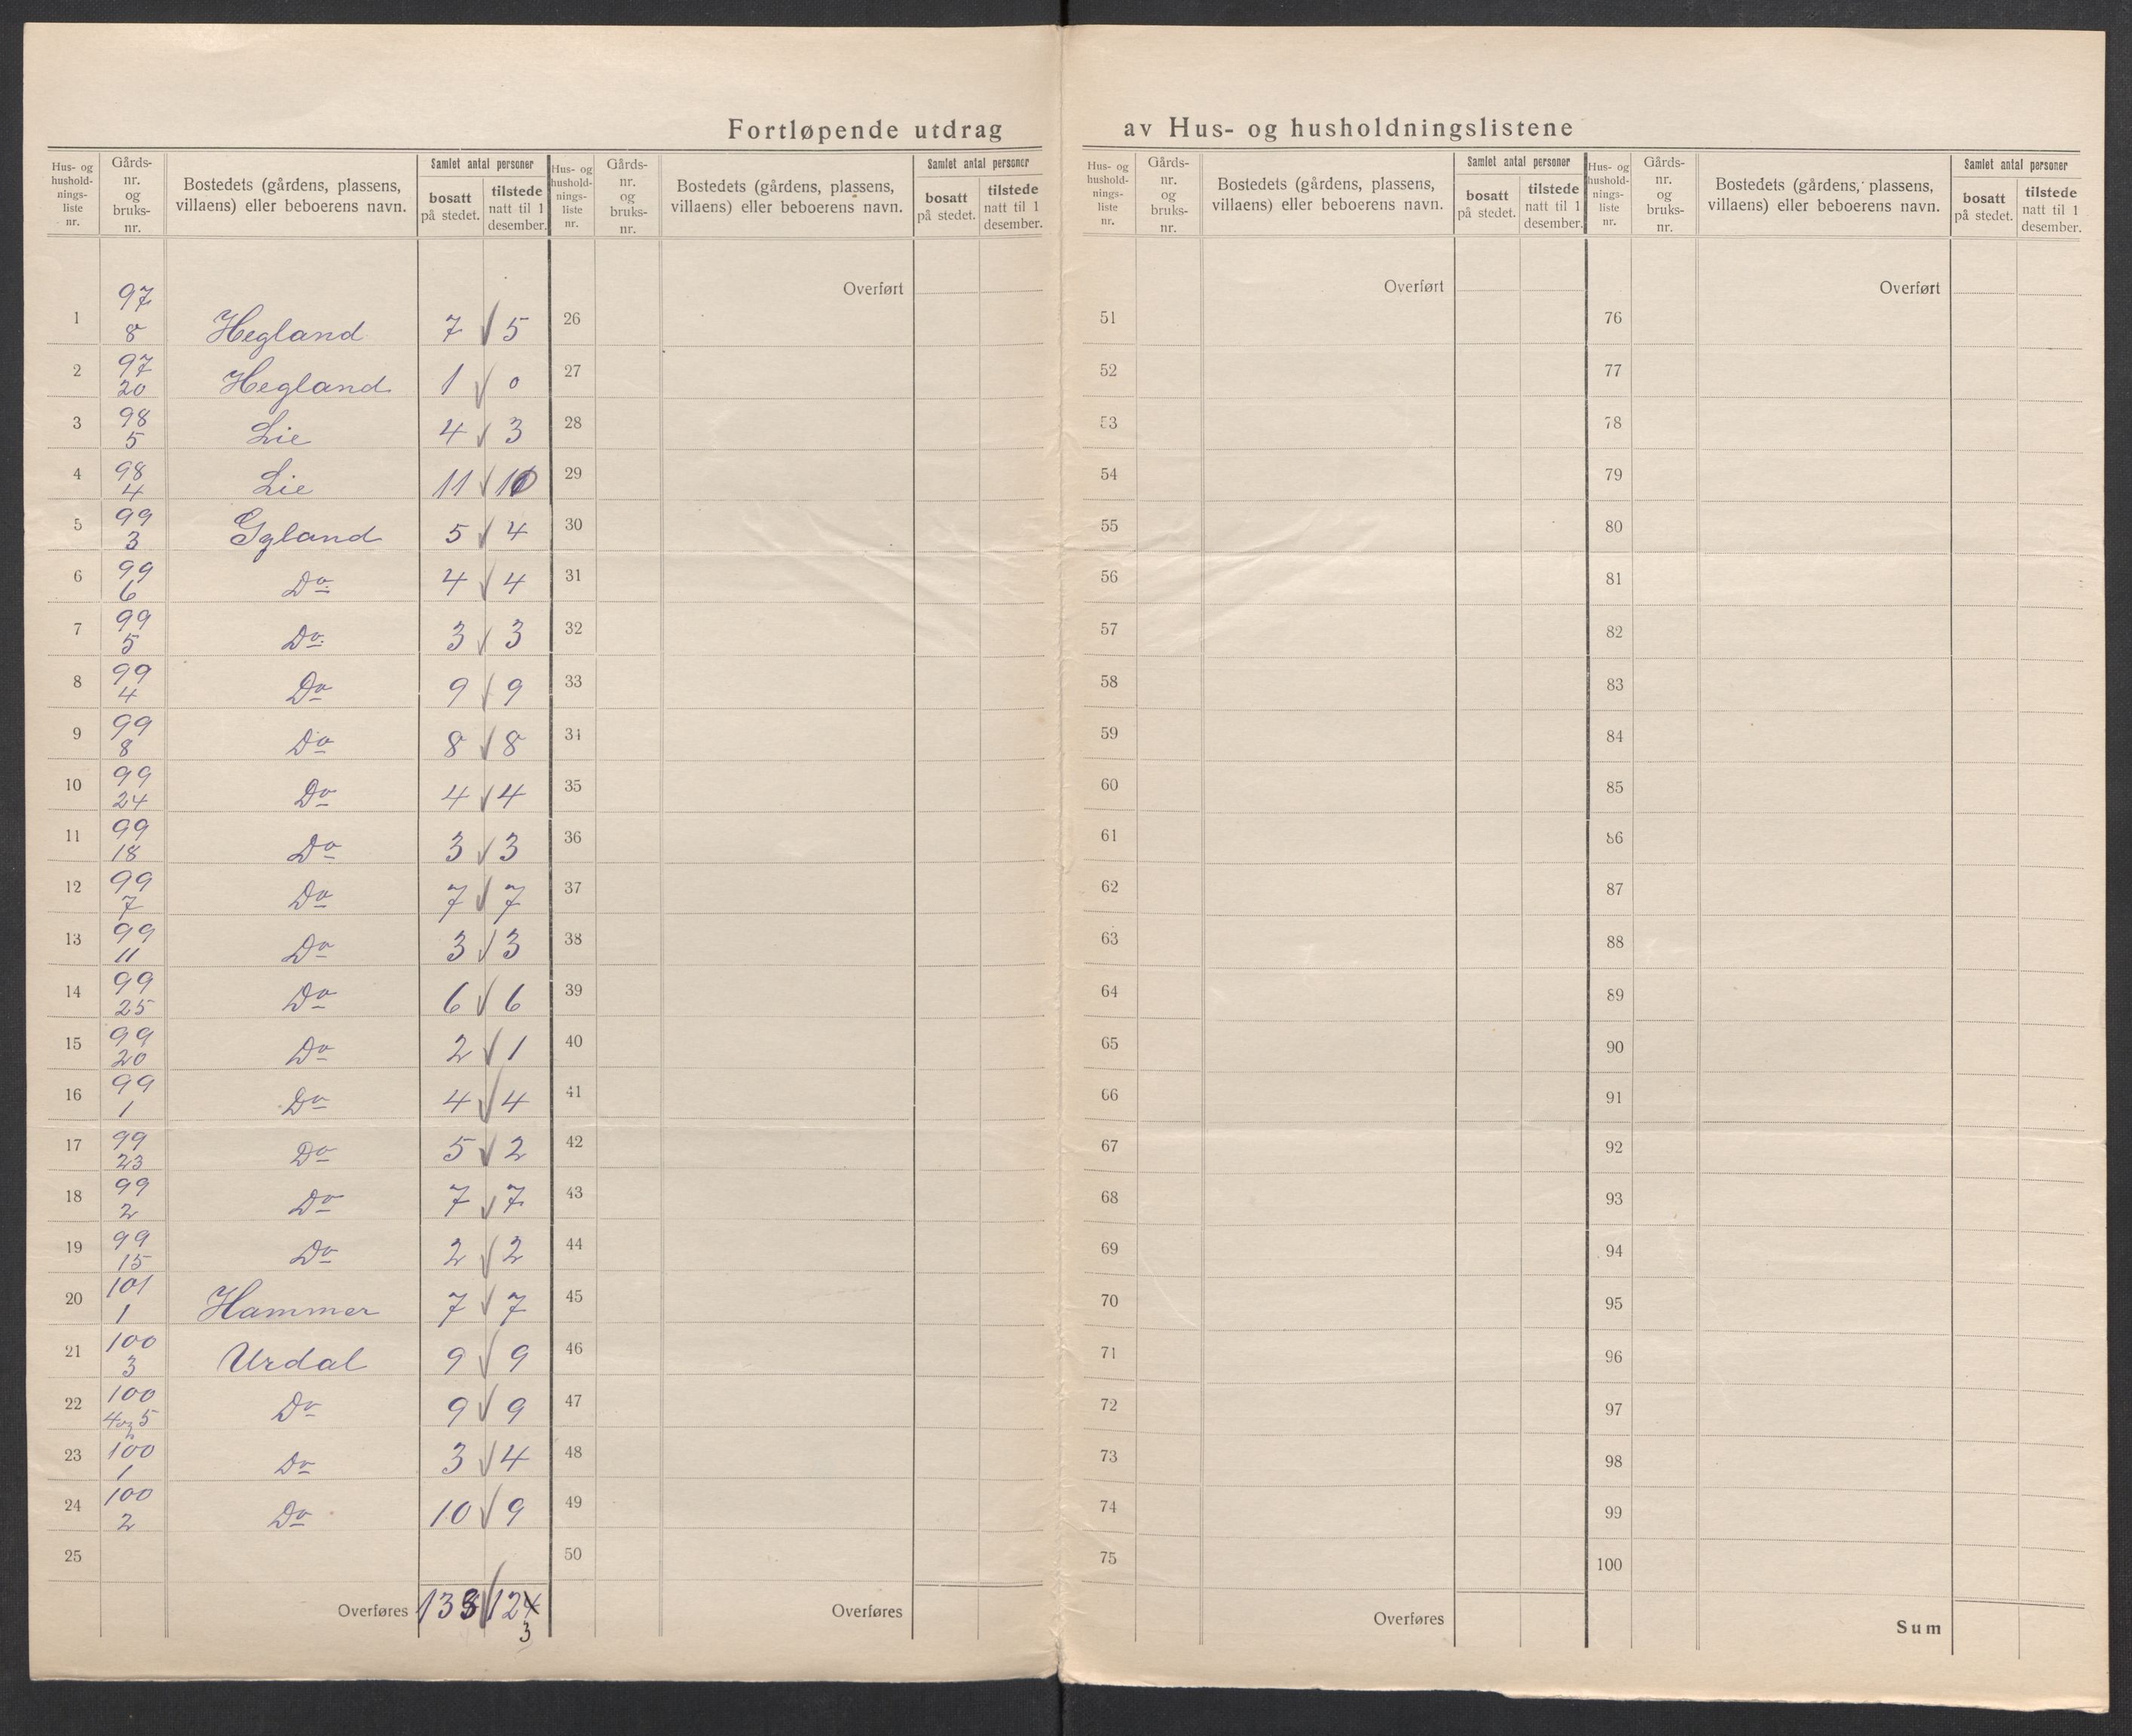 Fortløpende utdrag av Hus- og husholdningslistene
Hus- og
hushold-
nings-
liste
nr.
Gårds-
nr.
og
bruks-
nr.
Bostedets (gårdens, plassens,
villaens) eller beboerens navn.
Samlet antal personer
bosatt
på stedet.
tilstede
natt til 1
desember.
1 97 8 Hegland 7 √ 5
2 97 20 Hegland 1 √ 0
3 98 5 Lie 4 √ 3
4 98 4 Lie 11 √ 10
5 99 3 Igland 5 √ 4
6 99 6 Do 4 √ 4
7 99 5 Do 3 √ 3
8 99 4 Do 9 √ 9
9 99 8 Do 8 √ 8
10 99 24 Do 4 √ 4
11 99 18 Do 3 √ 3
12 99 7 Do 7 √ 7
13 99 11 Do 3 √ 3
14 99 25 Do 6 √ 6
15 99 20 Do 2 √ 1
16 99 1 Do 4 √ 4
17 99 23 Do 5 √ 2
18 99 2 Do 7 √ 7
19 99 15 Do 2 √ 2
20 101 1 Hammer 7 √ 7
21 100 3 Urdal 9 √ 9
22 100 4 og 5 Do 9 √ 9
23 100 1 Do 3 √ 4
24 100 2 Do 10 √ 9
25
Overføres 133 √ 124
3
Hus- og
hushold-
nings-
liste
nr.
Gårds-
nr.
og
bruks-
nr.
Bostedets (gårdens, plassens,
villaens) eller beboerens navn.
Samlet antal personer
bosatt
på stedet.
tilstede
natt til 1
desember.
Overført
26
27
28
29
30
31
32
33
34
35
36
37
38
39
40
41
42
43
44
45
46
47
48
49
50
Overføres
Hus- og
hushold-
nings-
liste
nr.
Gårds-
nr.
og
bruks-
nr.
Bostedets (gårdens, plassens,
villaens) eller beboerens navn.
Samlet antal personer
bosatt
på stedet.
tilstede
natt til 1
desember.
Overført
51
52
53
54
55
56
57
58
59
60
61
62
63
64
65
66
67
68
69
70
71
72
73
74
75
Overføres
Hus- og
hushold-
nings-
liste
nr.
Gårds-
nr.
og
bruks-
nr.
Bostedets (gårdens, plassens,
villaens) eller beboerens navn.
Samlet antal personer
bosatt
på stedet.
tilstede
natt til 1
desember.
Overført
76
77
78
79
80
81
82
83
84
85
86
87
88
89
90
91
92
93
94
95
96
97
98
99
100
Sum